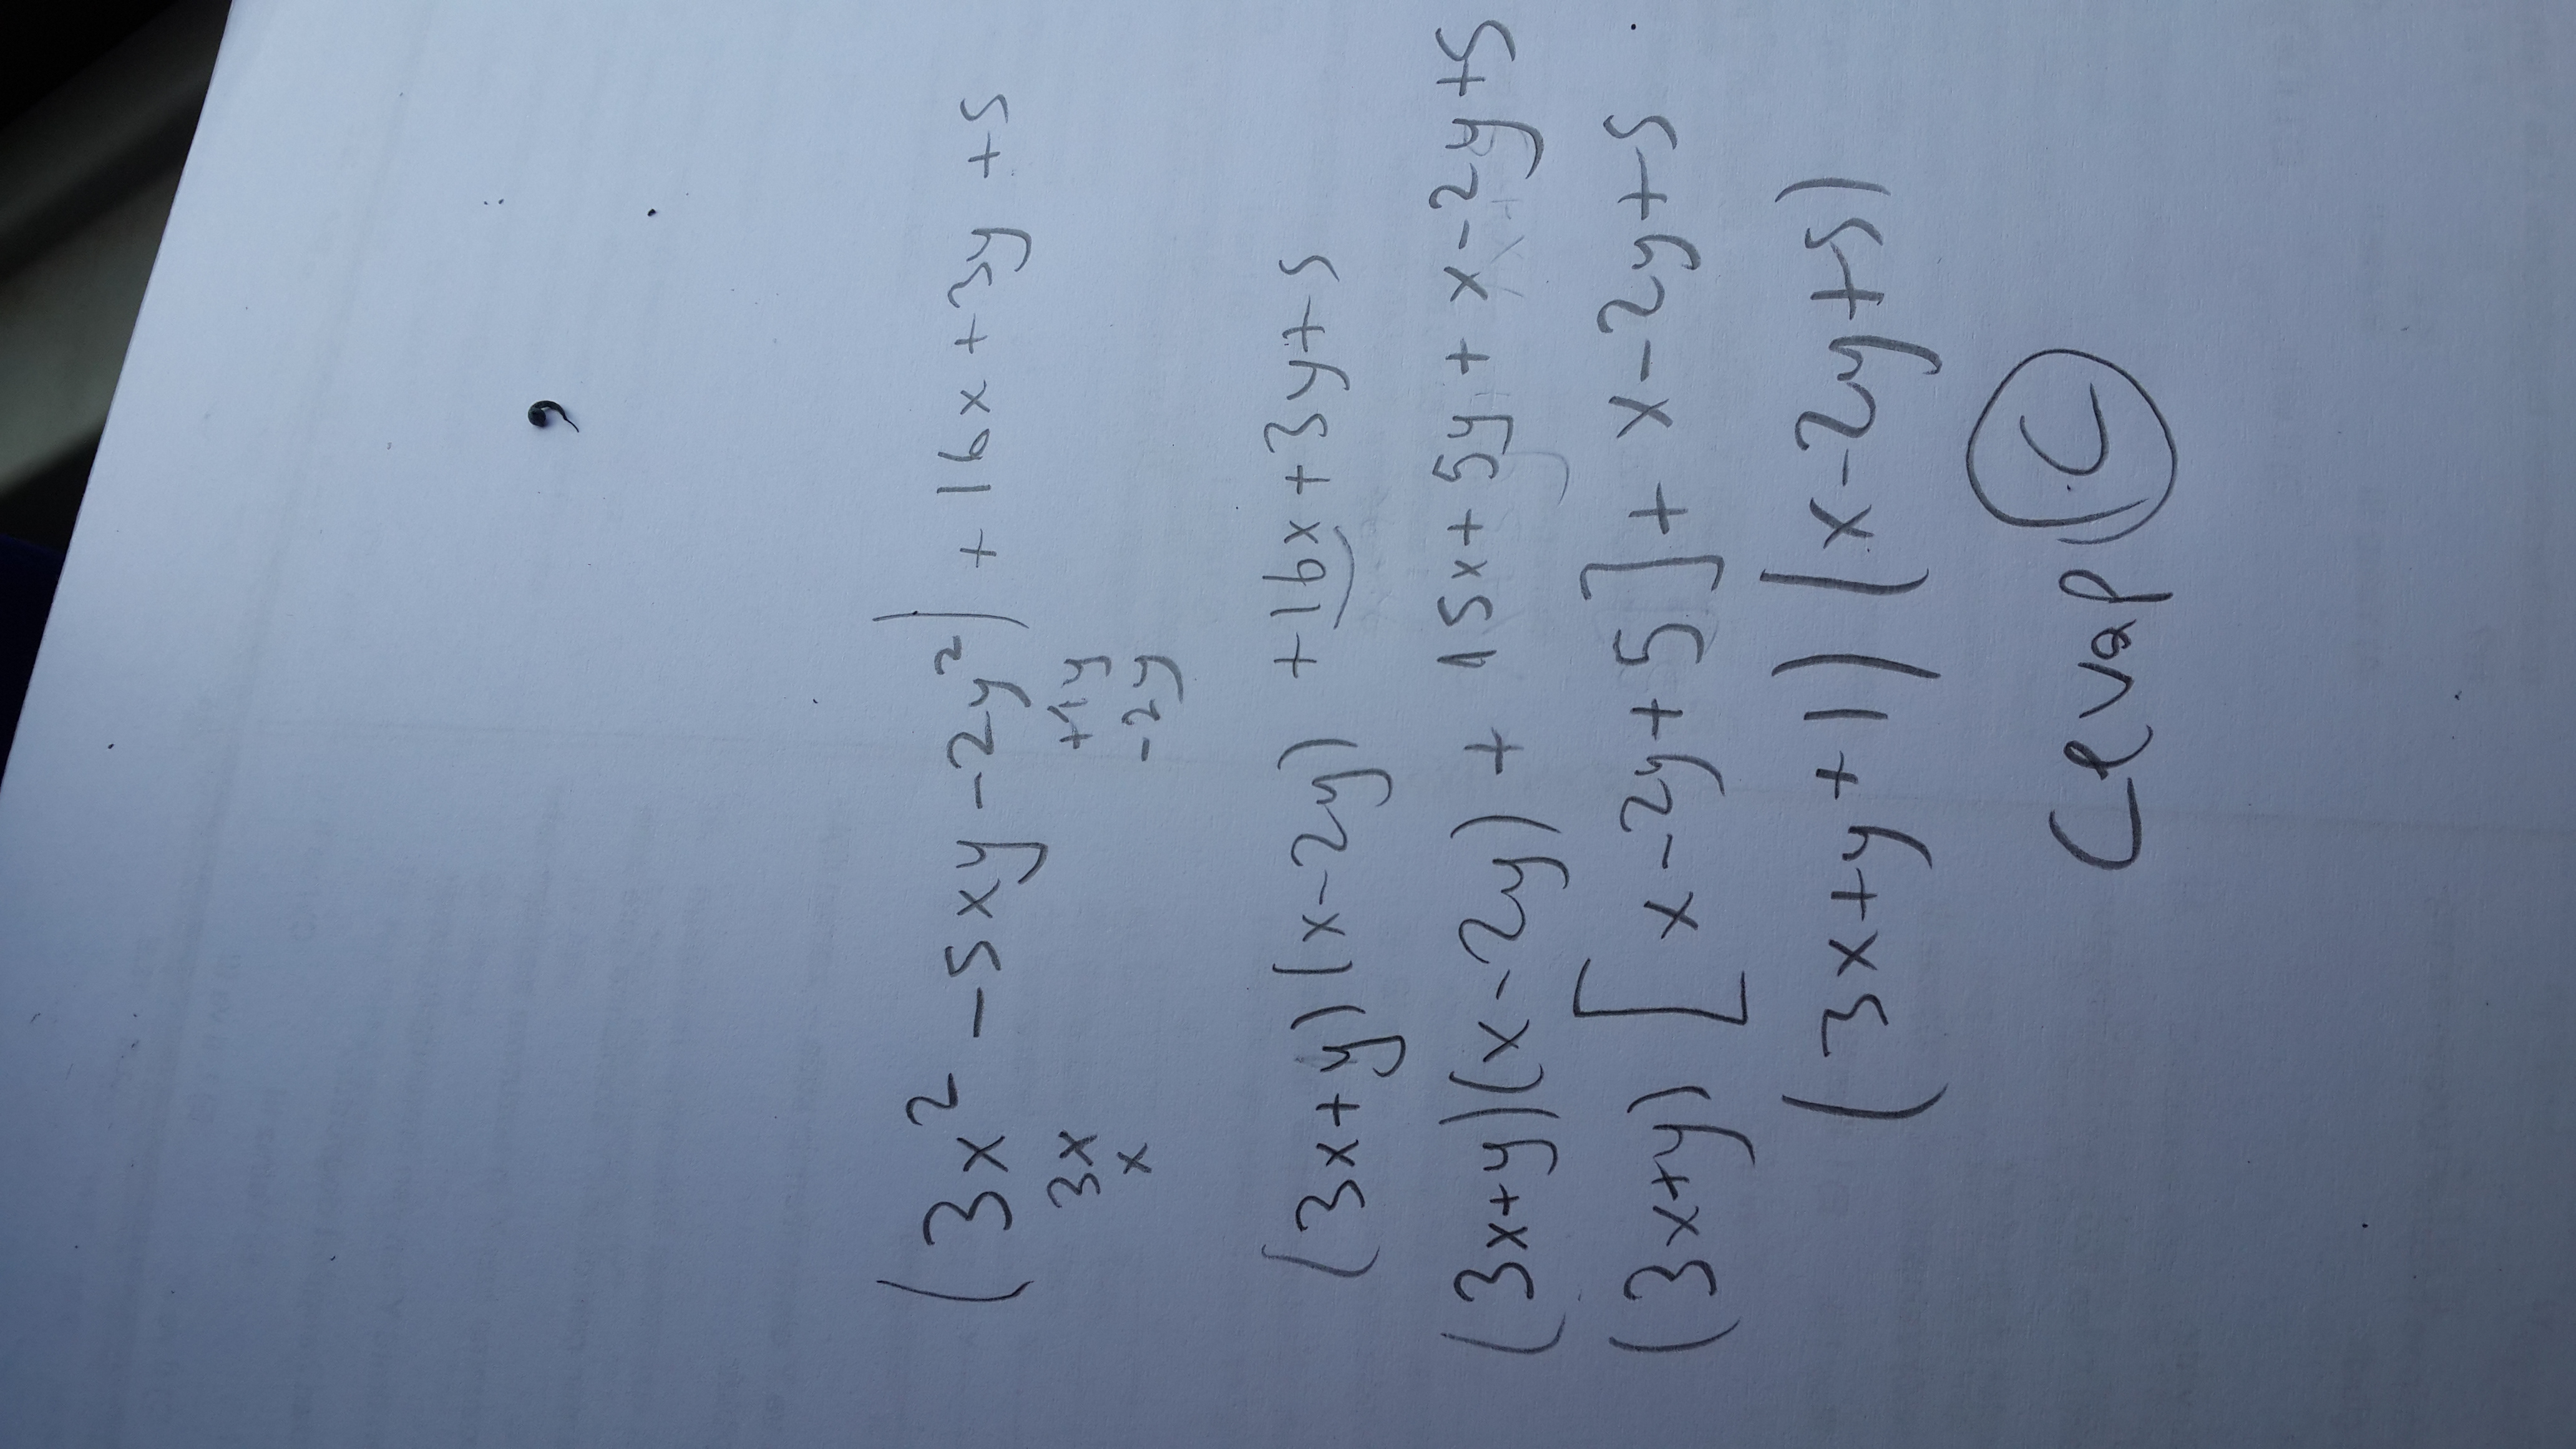 (3x² - 5xy - 2y²) + 16x + 3y + 5
3x +1y
x -2y
(3x+y)(x-2y) + 16x + 3y + 5
(3x+y)(x-2y) + 15x + 5y + x - 2y + 5
(3x+y) [x - 2y + 5] + x - 2y + 5
(3x + y + 1) (x - 2y + 5)
Cevap C